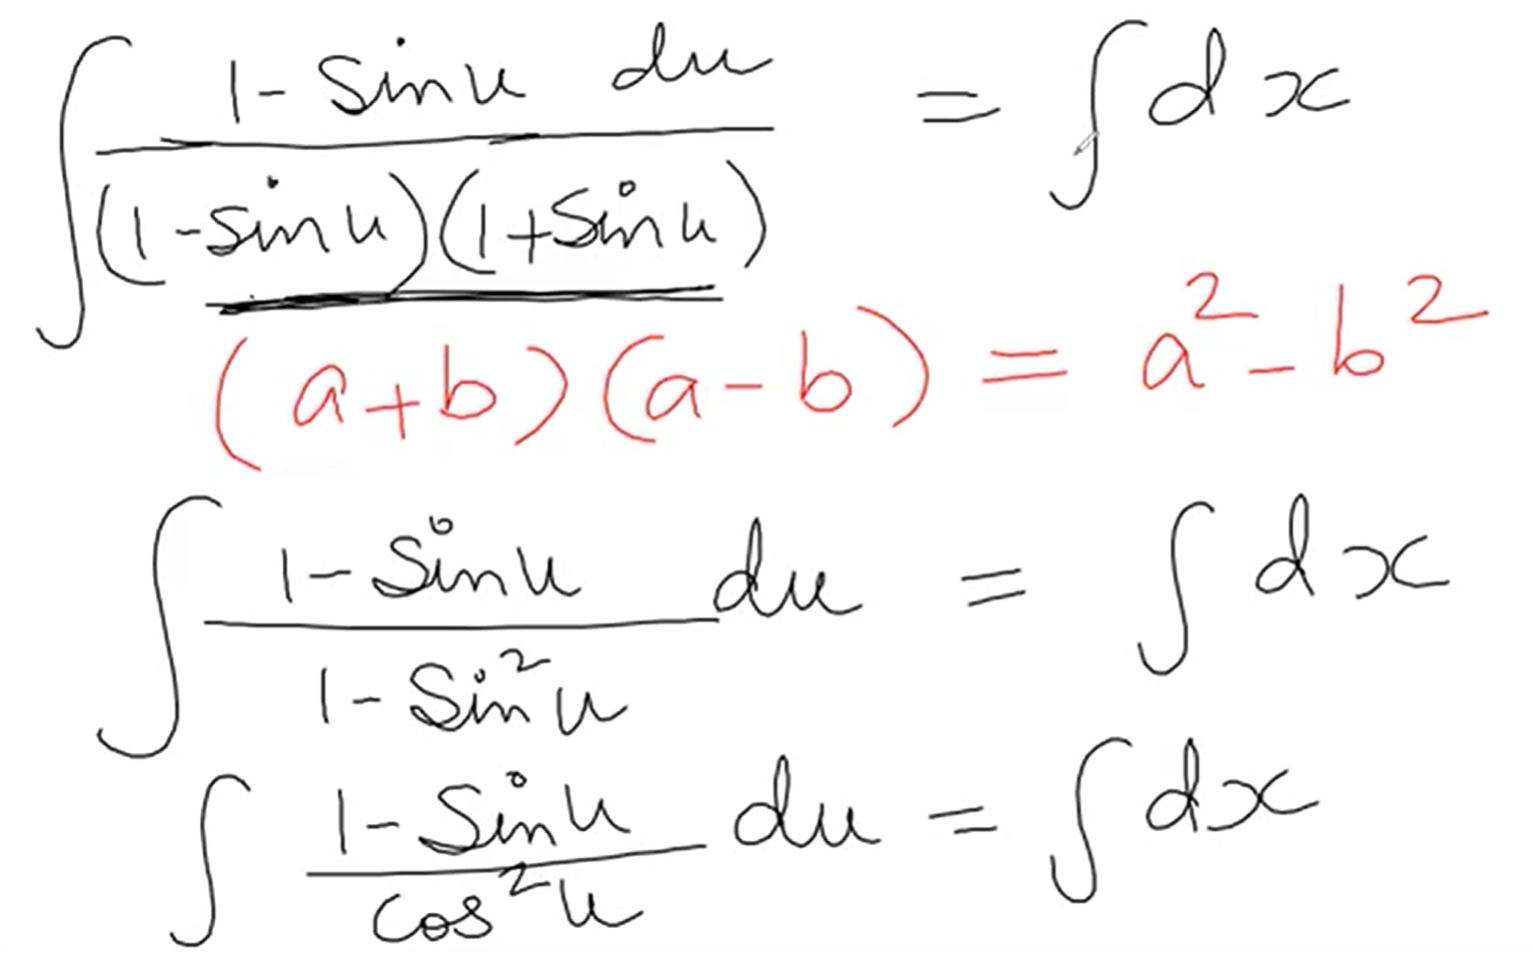 ∫ (1 - sin u du) / ((1 - sin u)(1 + sin u)) = ∫ dx
(a + b)(a - b) = a² - b²
∫ (1 - sin u) / (1 - sin² u) du = ∫ dx
∫ (1 - sin u) / (cos² u) du = ∫ dx